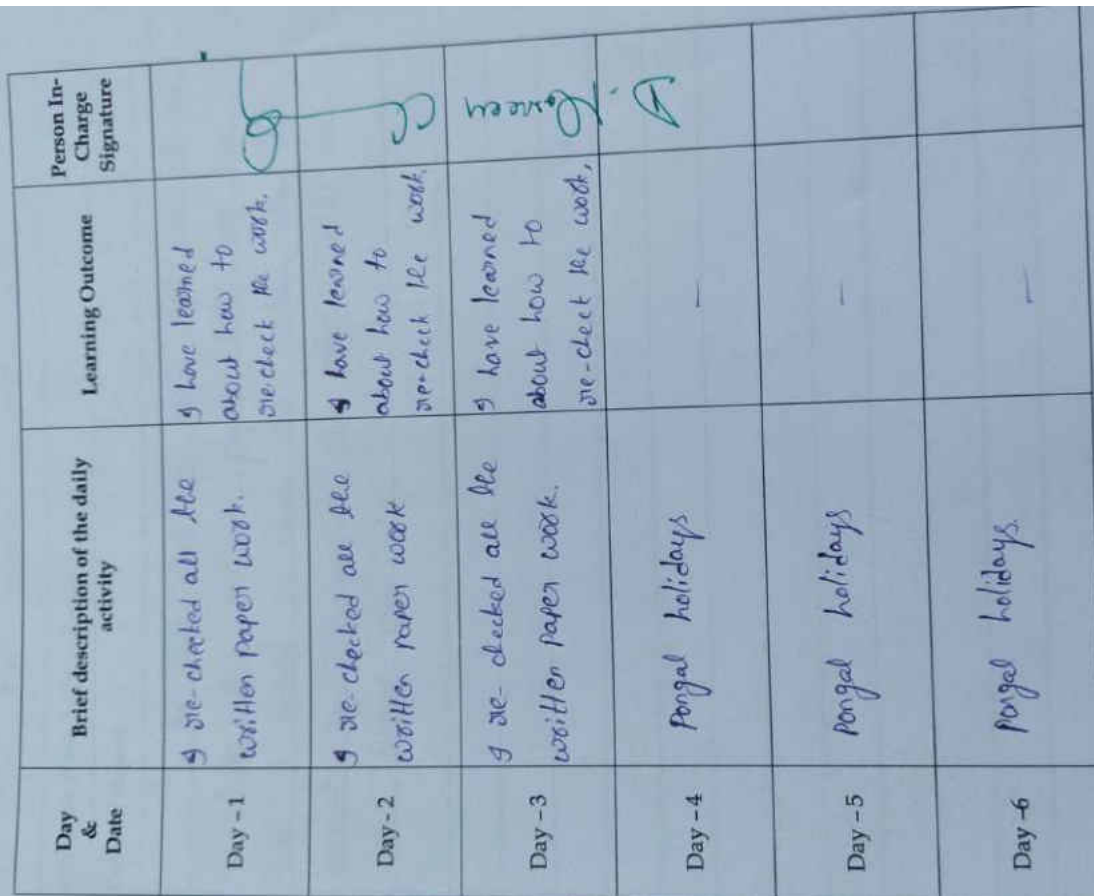 Day
&
Date
Brief description of the daily
activity
Learning Outcome
Person In-
Charge
Signature
Day – 1
I re-checked all the
written paper work.
I have learned
about how to
re-check the work.
Day - 2
I re-checked all the
written paper work
I have learned
about how to
re-check the work.
Day – 3
I re-checked all the
written paper work.
I have learned
about how to
re-check the work,
Day – 4
Pongal holidays
–
Day – 5
Pongal holidays
–
Day –6
Pongal holidays.
–